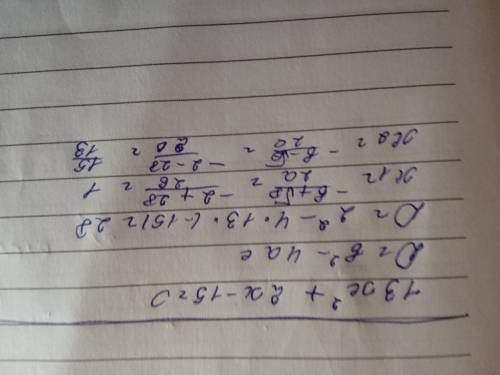 13x² + 2x - 15 = 0
D = b² - 4ac
D = 2² - 4 * 13 * (-15) = 28
x1 = -b+√D / 2a = -2+28 / 26 = 1
x2 = -b-√D / 2a = -2-28 / 26 = 15/13